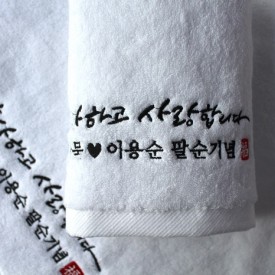 하고 사랑합니다
모♥이용순 팔순기념
하고 사랑합니다
이용순 팔순기념